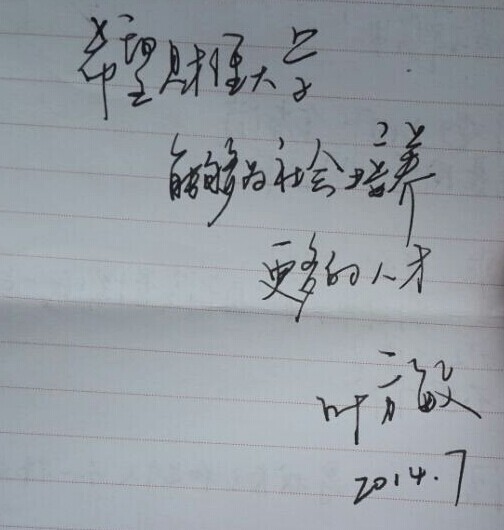 希望财经大学
能够为社会培养
更多的人才
叶
2014.7